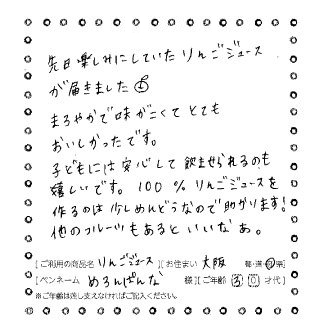 先日楽しみにしていたりんごジュース
が届きました
まろやかで味がこくてとても
おいしかったです。
子どもには安心して飲ませられるのも
嬉しいです。100%りんごジュースを
作るのは少しめんどうなので助かります!
他のフルーツもあるといいなぁ。
[ご利用の商品名 りんごジュース ][お住まい 大阪 都・道・府・県]
[ペンネーム めろんぱんな 様][ご年齢 30 才代]
※ご年齢は差し支えなければご記入ください。